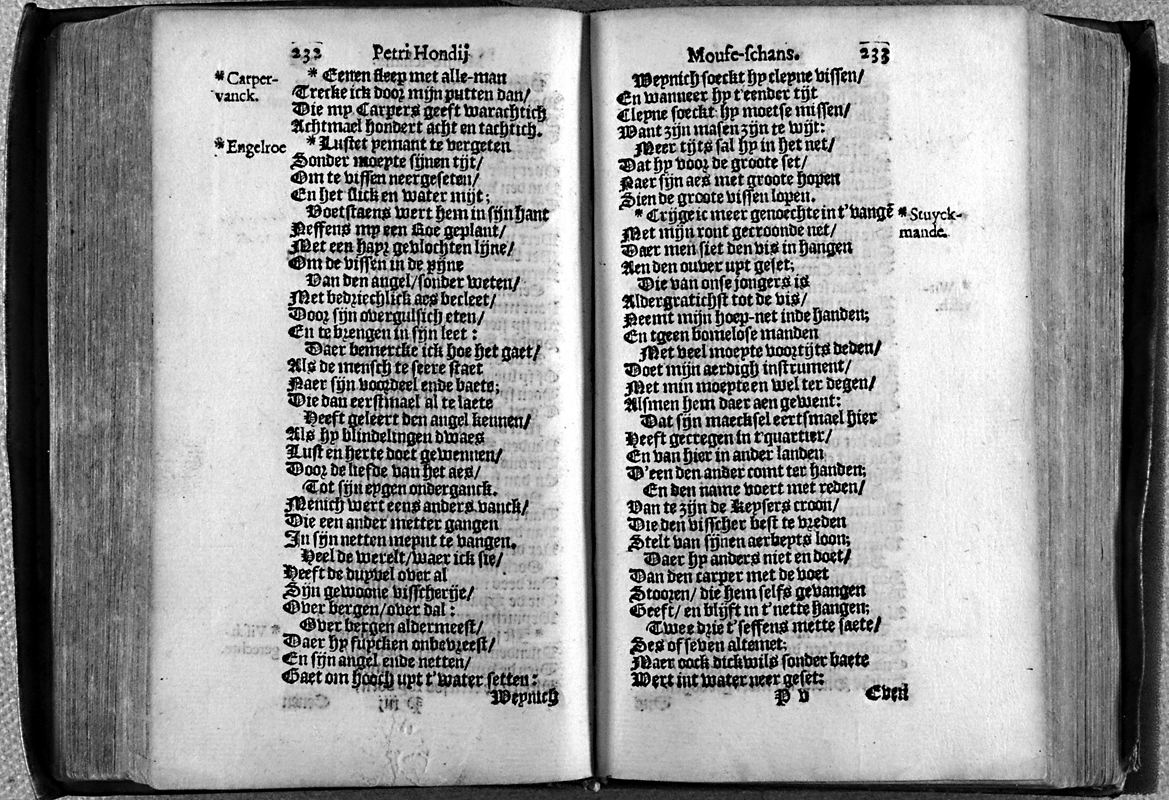 232 Petri Hondij
* Carper-
vanck.
* Eenen sleep met alle-man
Trecke ick door mijn putten dan/
Die my Carpers geeft warachtich
Achtmael hondert acht en tachtich.
* Engelroe
* Lustet yemant te vergeten
Sonder moeyte sijnen tijt/
Om te vissen neergeseten/
En het slick en water mijt;
Voetstaens wert hem in sijn hant
Neffens my een Roe geplant/
Met een hayr gevlochten lijne/
Om de vissen in de pijne
Van den angel/sonder weten/
Met bedriechlick aes becleet/
Door sijn overgulsich eten/
En te brengen in sijn leet:
Daer bemercke ick hoe het gaet/
Als de mensch te seere staet
Naer sijn voordeel ende baete;
Die dan eerstmael al te laete
Heeft geleert den angel kennen/
Als hy blindelingen dwaes
Lust en herte doet gewennen/
Door de liefde van het aes/
Tot sijn eygen onderganck.
Menich wert eens anders vanck/
Die een ander metter gangen
In sijn netten meynt te vangen.
Heel de werelt/waer ick sie/
Heeft de duyvel over al
Sijn gewoone visscherije/
Over bergen/over dal:
Over bergen aldermeest/
Daer hy fuycken onbevreest/
En sijn angel ende netten/
Gaet om hooch upt t'water setten:
Weynich
Mouse-schans. 233
Weynich soeckt hy cleyne vissen/
En wanneer hy t'eender tijt
Cleyne soeckt hy moetse missen/
Want zijn masen zijn te wijt:
Meer tijts sal hy in het net/
Dat hy voor de groote set/
Naer sijn aes met groote hopen
Sien de groote vissen lopen.
* Crijge ic meer genoechte in t'vangē
* Stuyck-
mande.
Met mijn ront gecroonde net/
Daer men siet den vis in hangen
Aen den ouver upt geset;
Die van onse jongers is
Aldergratichst tot de vis/
Neemt mijn hoep-net inde handen;
En tgeen bomelose manden
Met veel moeyte voortijts deden/
Doet mijn aerdigh instrument/
Met min moeyte en wel ter degen/
Alsmen hem daer aen gewent:
Dat sijn maecksel eertsmael hier
Heeft gecregen in t'quartier/
En van hier in ander landen
D'een den ander comt ter handen;
En den name voert met reden/
Van te zijn de Keysers croon/
Die den visscher best te vreden
Stelt van sijnen aerbeyts loon;
Daer hy anders niet en doet/
Dan den carper met de voet
Stooren/ die hem selfs gevangen
Geeft/ en blijft in t'nette hangen;
Twee drie t'seffens mette saete/
Ses of seven altemet;
Maer oock dickwils sonder baete
Wert int water neer geset:
P v Even